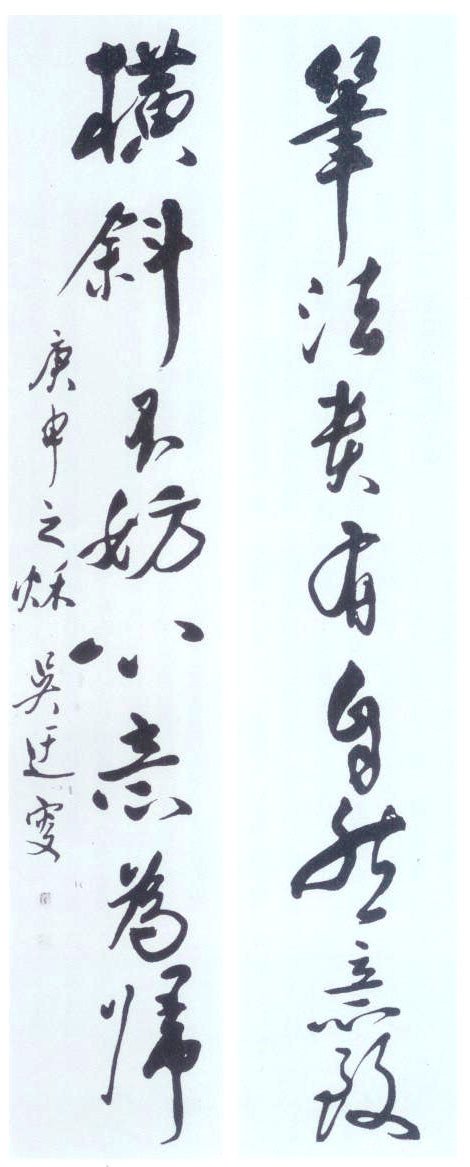 筆法貴有自然意致
橫斜不妨以意為歸
庚申之秌 吳